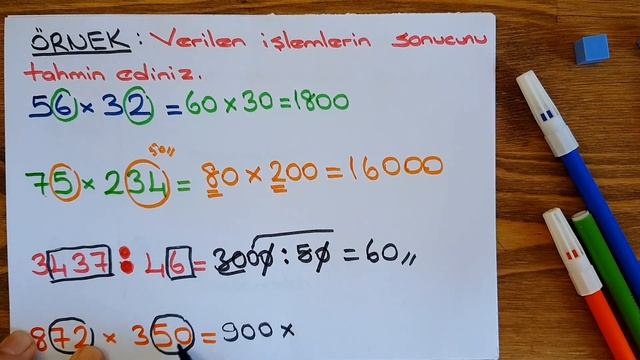 ÖRNEK : Verilen işlemlerin sonucunu
tahmin ediniz.
56 × 32 = 60 × 30 = 1800
50,,
75 × 234 = 80 × 200 = 16000
3437 : 46 = 3000 : 50 = 60,,
872 × 350 = 900 ×